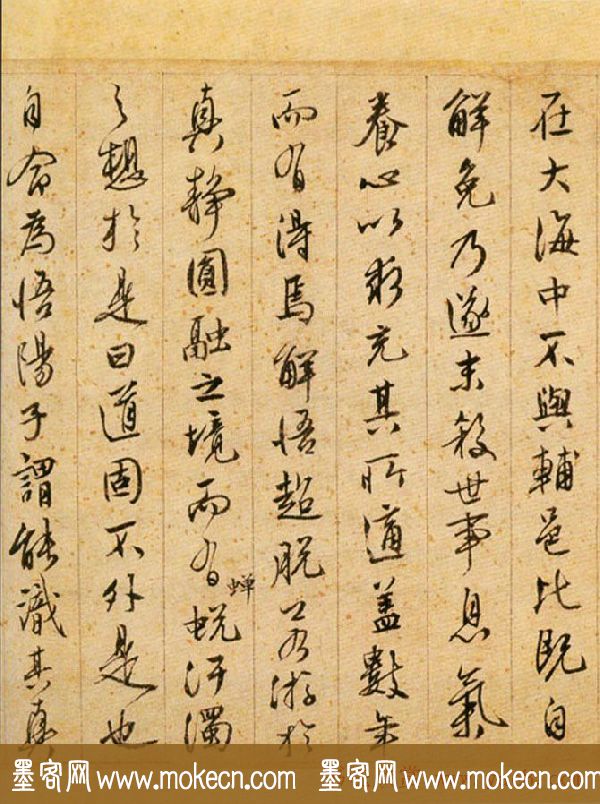 在大海中不與輔邑比既自
解免乃遂末殺世事息氣
養心以求充其所適蓋數年
而有得焉解悟超脫若游於
真靜圓融之境而有蟬蛻汙濁
之想於是曰道固不外是也
自命為悟陽子謂能識其真
墨客网 www.mokecn.com 墨客网 www.mokecn.com